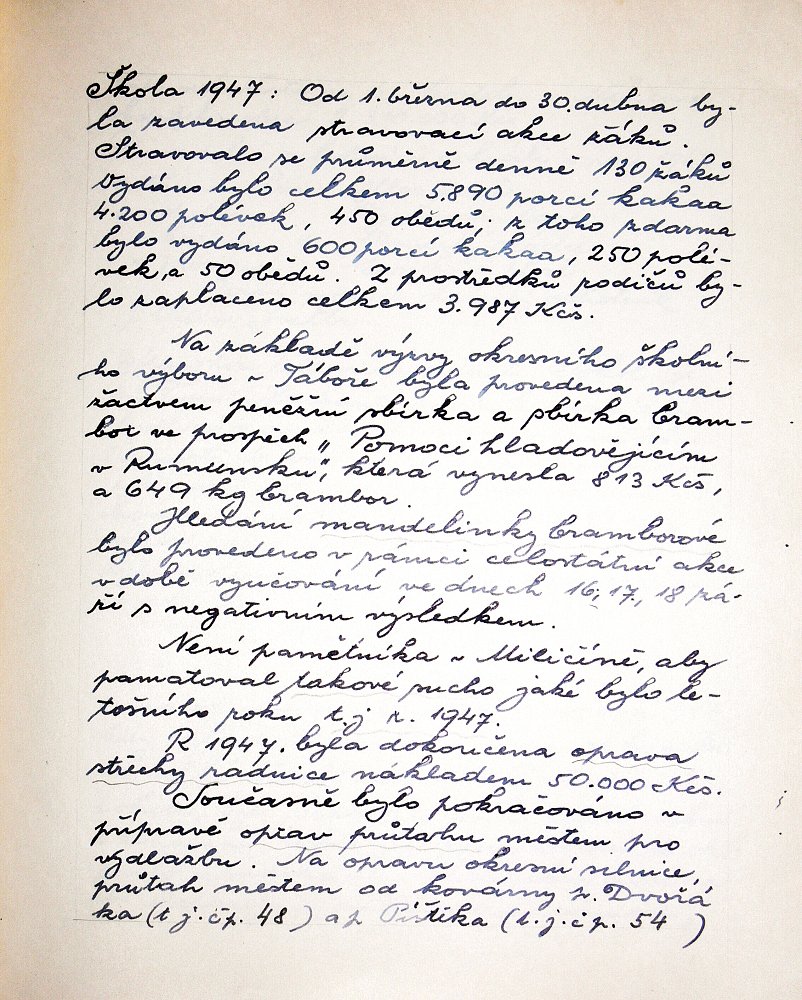 Škola 1947: Od 1. března do 30. dubna by-
la zavedena stravovací akce žáků.
Stravovalo se průměrně denně 130 žáků
Vydáno bylo celkem 5.890 porcí kakaa
4.200 polévek, 450 obědů; z toho zdarma
bylo vydáno 600 porcí kakaa, 250 polé-
vek, a 50 obědů. Z prostředků rodičů by-
lo zaplaceno celkem 3.987 Kčs.
Na základě výzvy okresního školní-
ho výboru v Táboře byla provedena mezi
žactvem peněžní sbírka a sbírka bram-
bor ve prospěch „Pomoci hladovějícím
v Rumunsku", která vynesla 813 Kčs,
a 649 kg brambor.
Hledání mandelinky bramborové
bylo provedeno v rámci celostátní akce
v době vyučování ve dnech 16., 17., 18 zá-
ří s negativním výsledkem.
Není pamětníka v Miličíně, aby
pamatoval takové sucho jaké bylo le-
tošního roku t.j. r. 1947.
R 1947. byla dokončena oprava
střechy radnice nákladem 50.000 Kčs.
Současně bylo pokračováno v
přípravě oprav průtahu městem pro
vydlažbu. Na opravu okresní silnice,
průtah městem od kovárny p. Dvořá
ka (t j. čp. 48) a p. Pištěka (t.j. č p. 54)